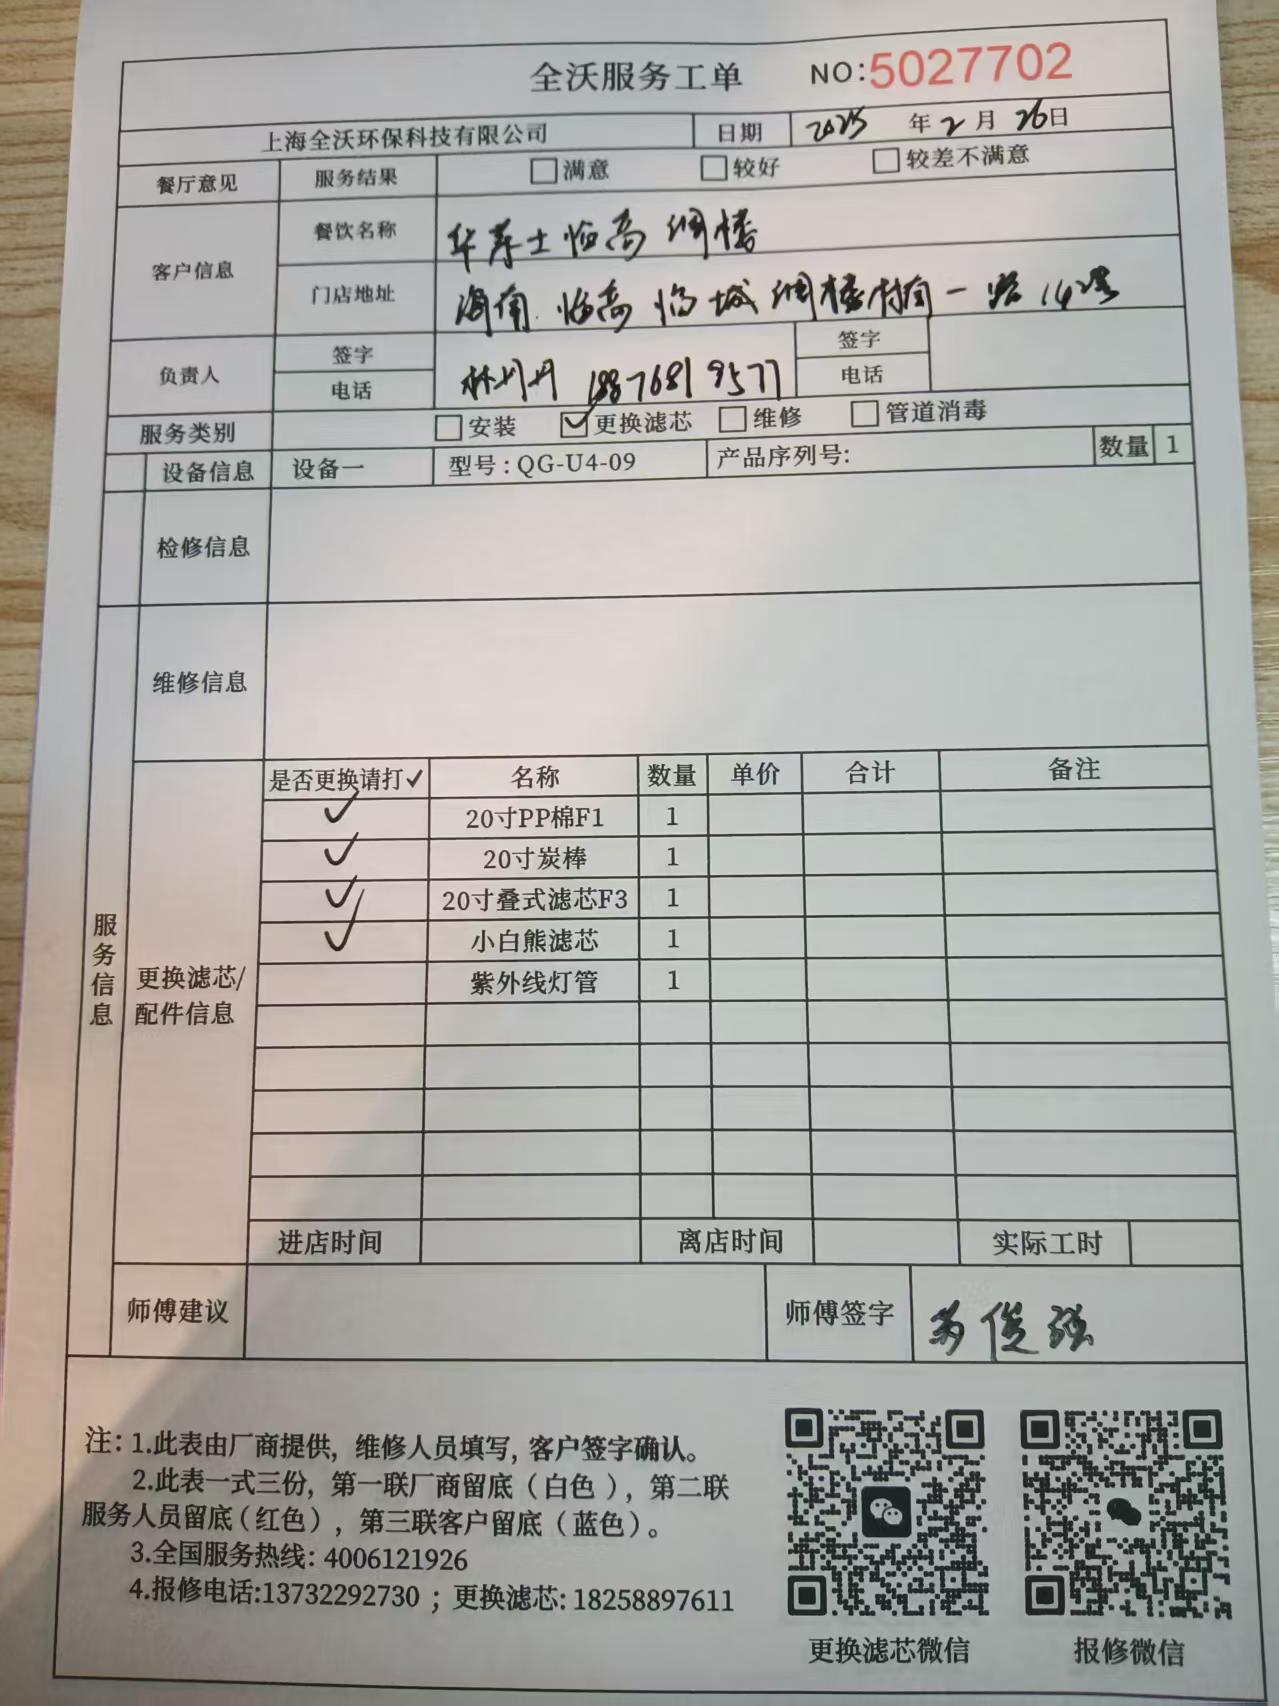 全沃服务工单 NO:5027702
上海全沃环保科技有限公司 日期 2025 年 2 月 26 日
餐厅意见 服务结果 □满意 □较好 □较差不满意
客户信息 餐饮名称 华莱士临高调楼
门店地址 海南临高临城调楼村南一路142号
负责人 签字 林丹丹 签字
电话 18876819577 电话
服务类别 □安装 ☑更换滤芯 □维修 □管道消毒
设备信息 设备一 型号:QG-U4-09 产品序列号: 数量 1
检修信息
维修信息
服务信息
更换滤芯/配件信息
是否更换请打✓ 名称 数量 单价 合计 备注
✓ 20寸PP棉F1 1
✓ 20寸炭棒 1
✓ 20寸叠式滤芯F3 1
✓ 小白熊滤芯 1
紫外线灯管 1
进店时间 离店时间 实际工时
师傅建议 师傅签字 俊强
注: 1.此表由厂商提供, 维修人员填写, 客户签字确认。
2.此表一式三份, 第一联厂商留底(白色), 第二联
服务人员留底(红色), 第三联客户留底(蓝色)。
3.全国服务热线: 4006121926
4.报修电话:13732292730 ; 更换滤芯: 18258897611
更换滤芯微信 报修微信